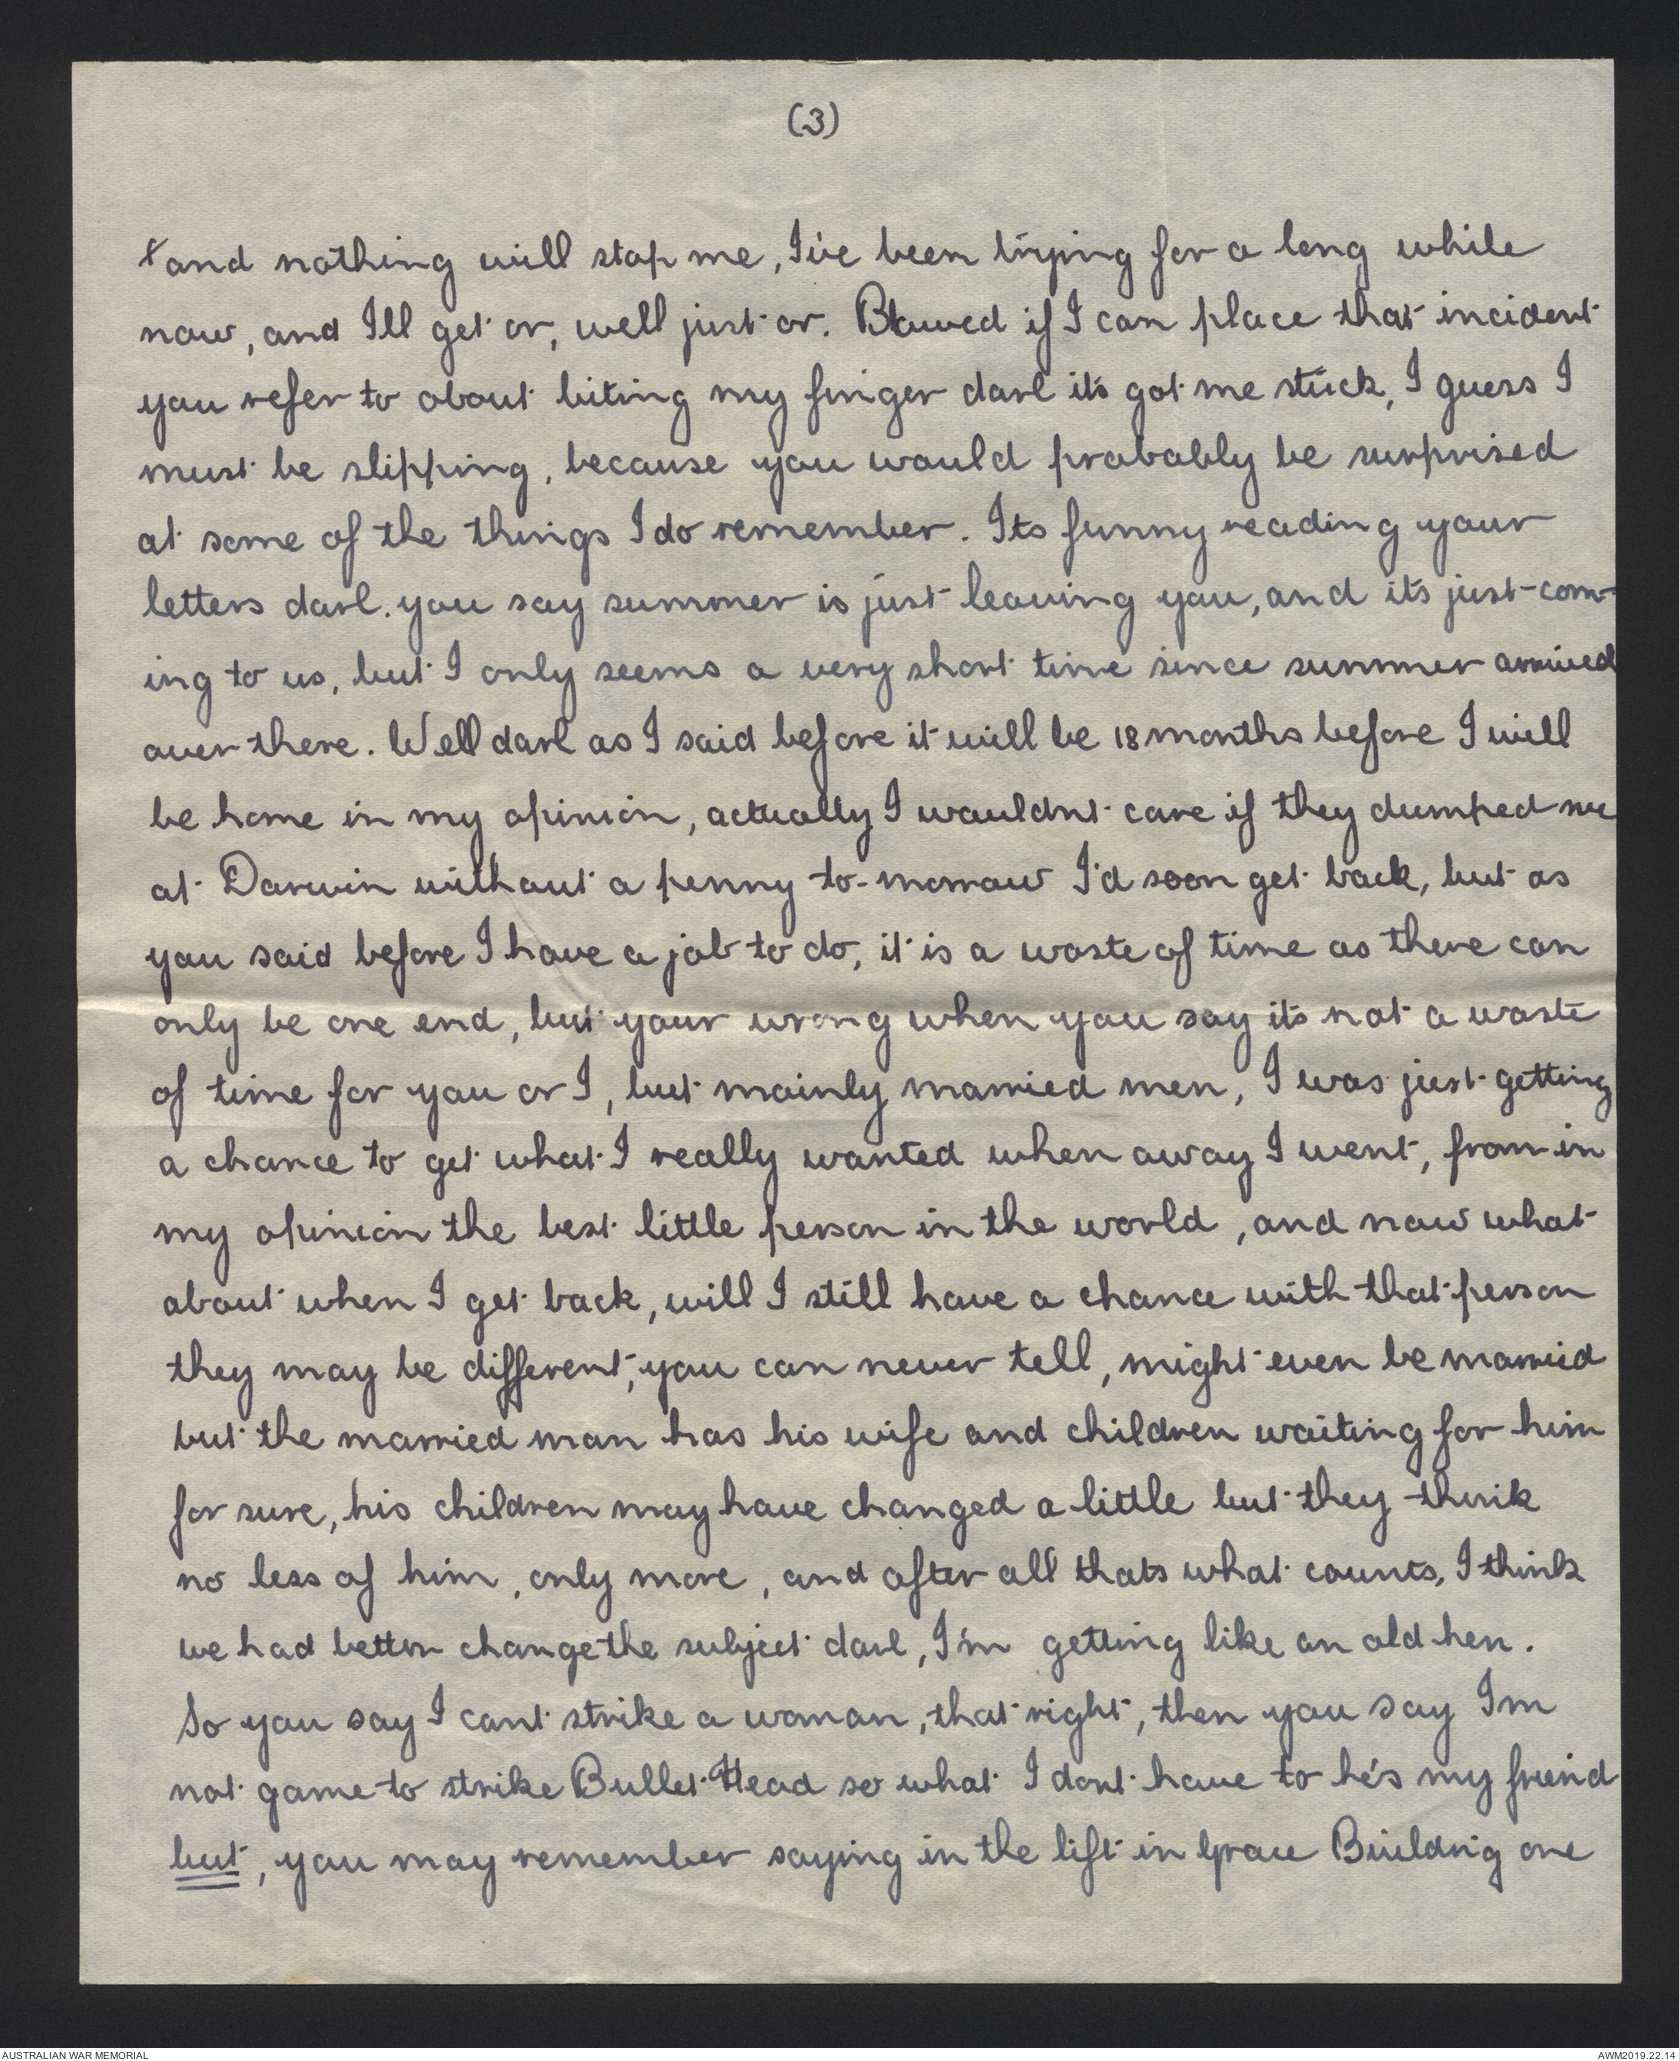 (3)
+ and nothing will stop me, I've been trying for a long while
now, and Ill get or, well just or. Blowed if I can place that incident
you refer to about biting my finger darl it's got me stuck, I guess I
must be slipping, because you would probably be surprised
at some of the things I do remember. Its funny reading your
letters darl. you say summer is just leaving you, and it's just com-
ing to us, but I only seems a very short time since summer arrived
over there. Well darl as I said before it will be 18 months before I will
be home in my opinion, actually I wouldnt care if they dumped me
at Darwin without a penny to-morrow I'd soon get back, but as
you said before I have a job to do, it is a waste of time as there can
only be one end, but your wrong when you say it's not a waste
of time for you or I, but mainly married men, I was just getting
a chance to get what I really wanted when away I went, from in
my opinion the best little person in the world, and now what
about when I get back, will I still have a chance with that person
they may be different, you can never tell, might even be married
but the married man has his wife and children waiting for him
for sure, his children may have changed a little but they think
no less of him, only more, and after all thats what counts, I think
we had better change the subject darl, I'm getting like an old hen.
So you say I cant strike a woman, that right, then you say Im
not game to strike Bullet Head so what I dont have to he's my friend
but, you may remember saying in the lift in Grace Building one
AUSTRALIAN WAR MEMORIAL
AWM2019.22.14